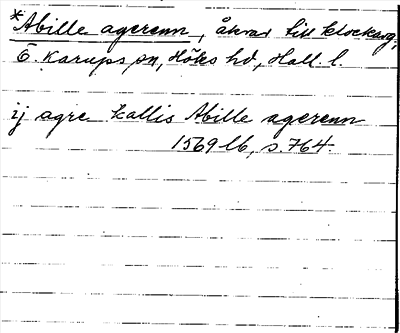 *Abille agerenn, åkrar till klockerg,
Ö. Karups sn, Höks hd, Hall. l.
ij agre kallis Abille agerenn
1569 lb, s. 764.